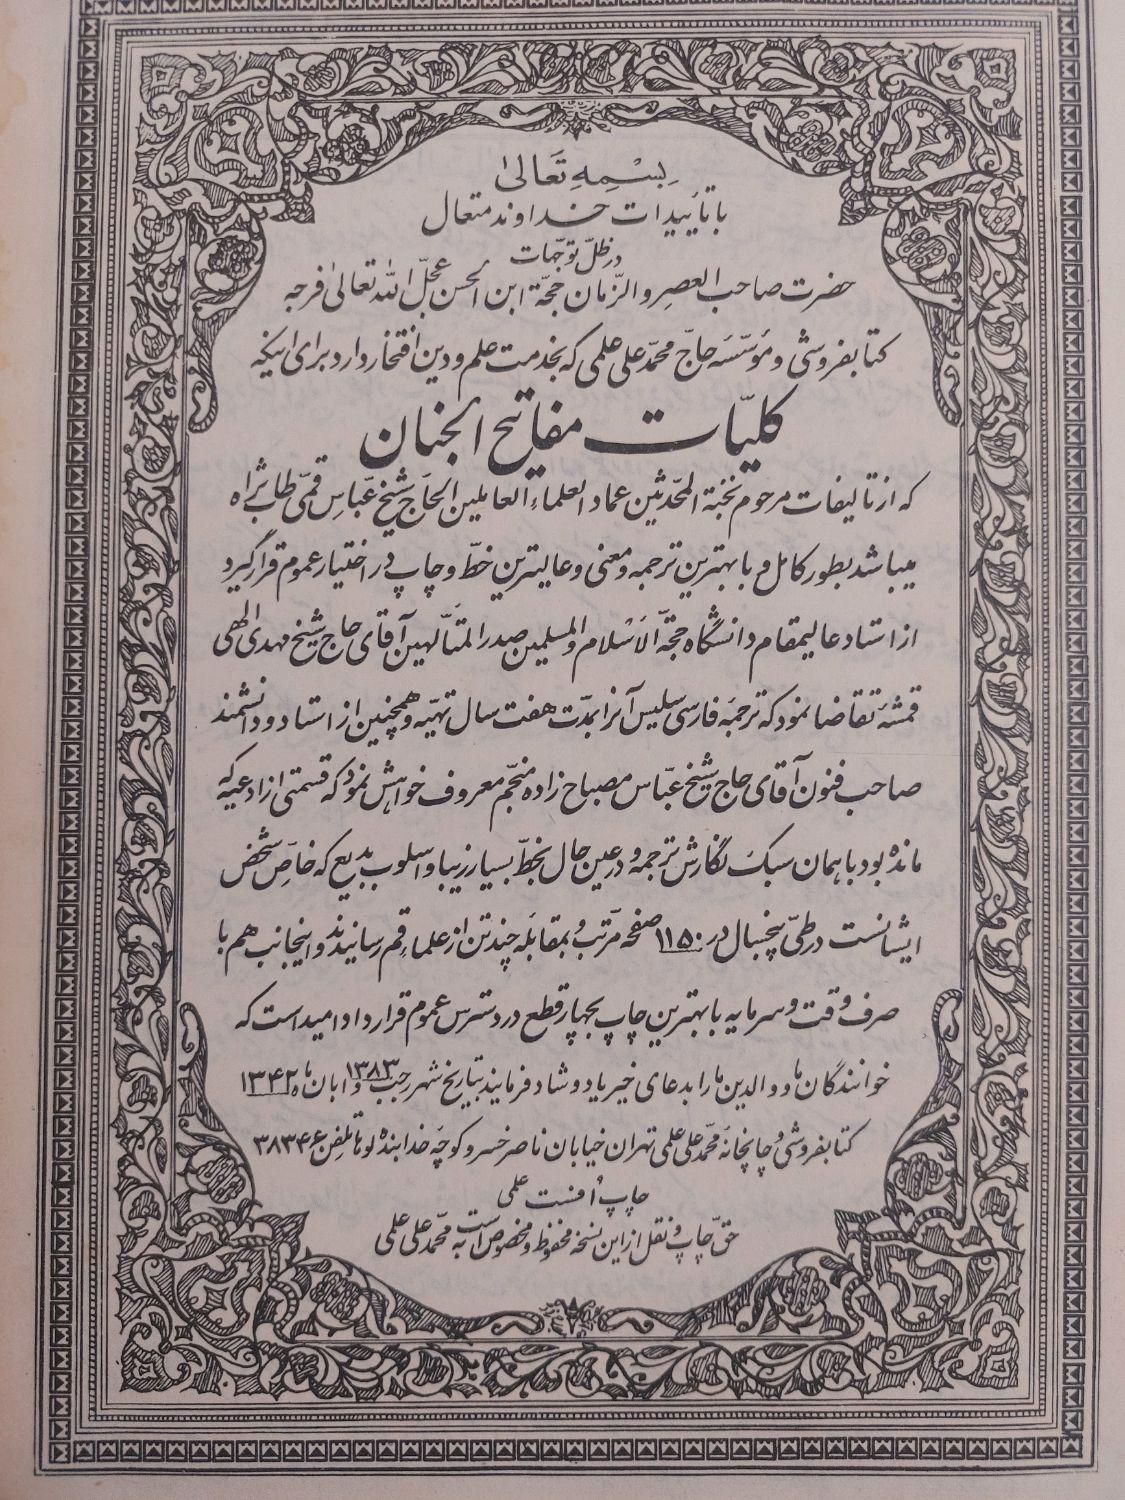 بِسْمِهِ تَعَالىٰ
با تأییدات خداوند متعال
در ظلّ توجّهات
حضرت صاحب العصر و الزّمان حجّة ابن الحسن عجّل الله تعالیٰ فرجه
کتابفروشی و مؤسّسه حاجّ محمّد علی علمی که بخدمت علم و دین افتخار دارد برای اینکه
کلیّات مفاتیح الجنان
که از تالیفات مرحوم نخبة المحدّثین عماد العلماء العاملین الحاجّ شیخ عبّاس قمّی طاب ثراه
میباشد بطور کامل و با بهترین ترجمه و معنی و عالیترین خطّ و چاپ در اختیار عموم قرار گیرد
از استاد عالیمقام دانشگاه حجّة الاسلام و المسلمین صدر المتألّهین آقای حاج شیخ مهدی الهی
قمشه تقاضا نمود که ترجمه فارسی سلیس آنرا بمدّت هفت سال تهیّه و همچنین از استاد و دانشمند
صاحب فنون آقای حاج شیخ عبّاس مصباح زاده منجّم معروف خواهش نمود که قسمتی از ادعیه که
مانده بود با همان سبک نگارش ترجمه و در عین حال بخطّ بسیار زیبا و اسلوب بدیع که خاصّ شخص
ایشانست در طیّ پنجسال در ۱۱۵۰ صفحه مرتّب و بمقابله چند تن از علماء قم رسانیدند و اینجانب هم با
صرف وقت و سرمایه با بهترین چاپ بچهار قطع در دسترس عموم قرار داد امید است که
خوانندگان ما و والدین ما را بدعای خیر یاد و شاد فرمایند بتاریخ شهر رجب ۱۳۸۳ و ابان ماه ۱۳۴۲
کتابفروشی و چاپخانه محمّد علی علمی تهران خیابان ناصر خسرو کوچه خدابنده لو تلفن ۳۸۳۴۶
چاپ اُفست علمی
حقّ چاپ و نقل از این نسخه محفوظ و مخصوص است به محمّد علی علمی